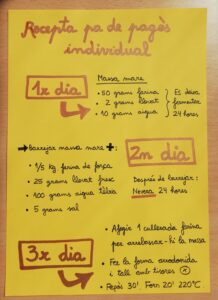 Recepta pa de pagès
individual
1r dia
Massa mare
• 50 grams farina
• 2 grams llevat
• 10 grams aigua
Es deixa
fermentar
24 hores
→ Barrejar massa mare +:
• 1/5 kg farina de força
• 25 grams llevat fresc
• 100 grams aigua tèbia
• 5 grams sal
2n dia
Després de barrejar:
Nevera 24 hores
3r dia
• Afegir 1 cullerada farina
per arrebossar-hi la massa
• Fer la forma arrodonida
i tall amb tisores
• Repòs 30' Forn 20' 220°C